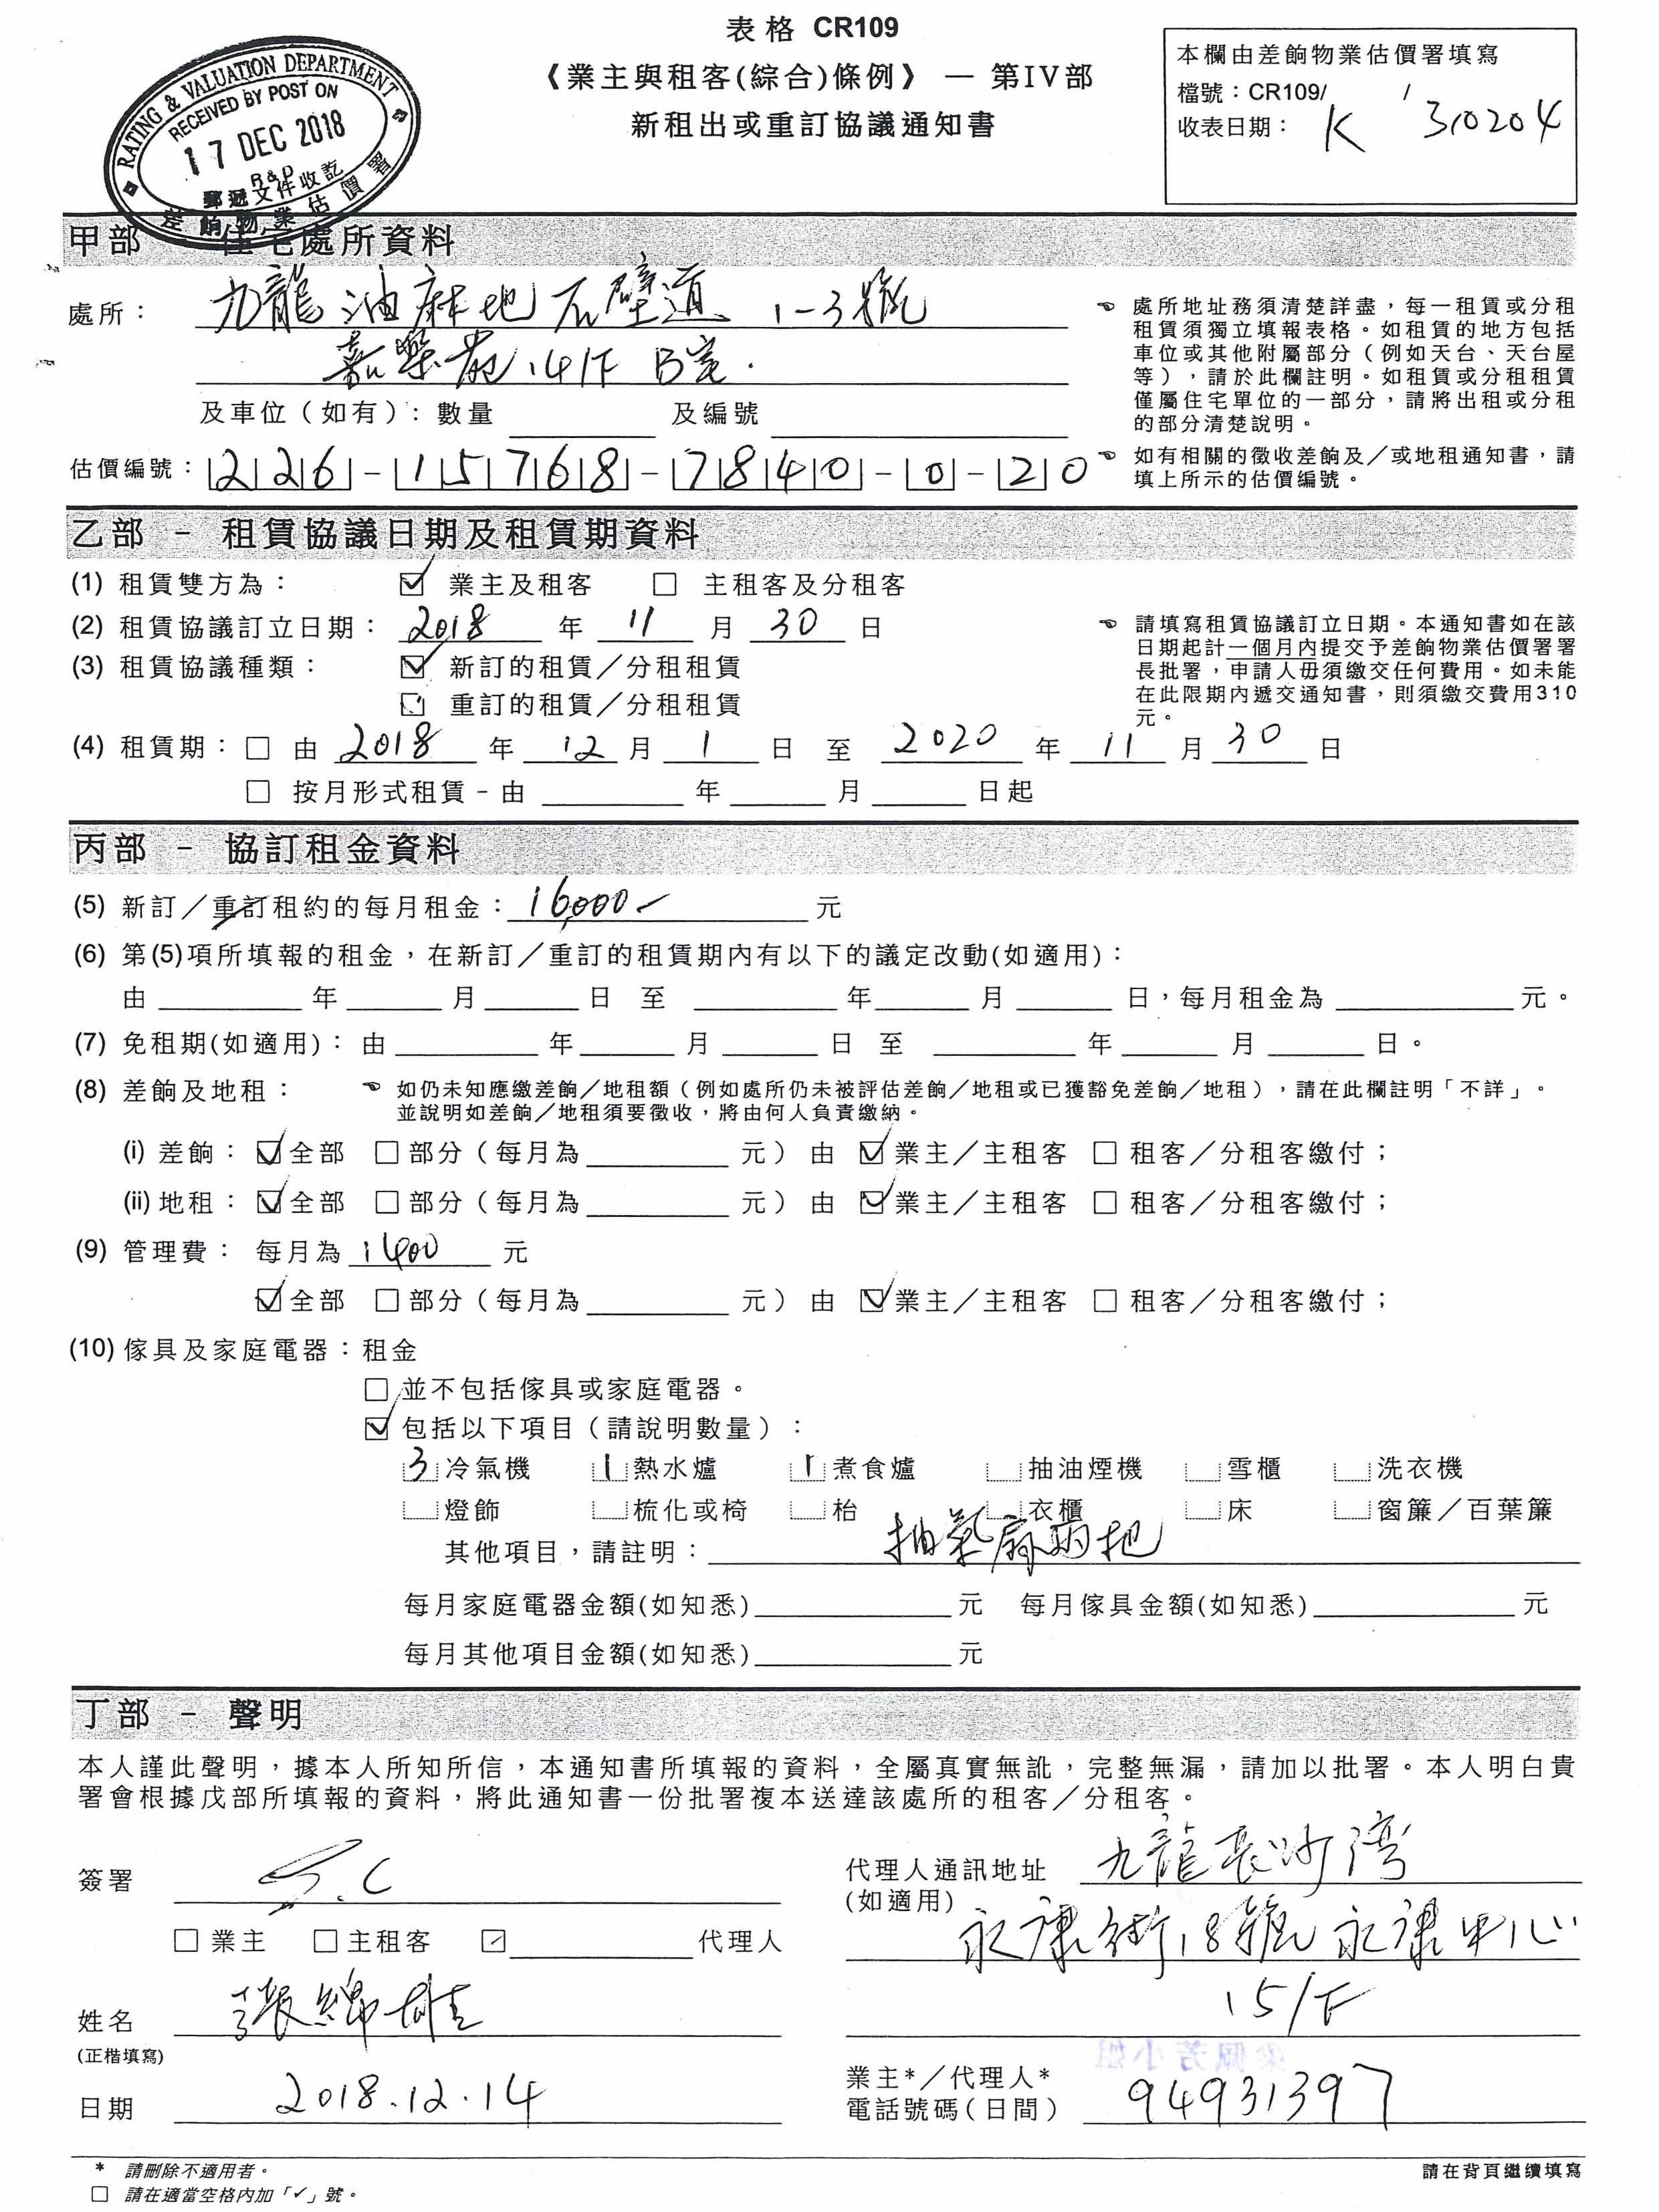 表格 CR109
《業主與租客(綜合)條例》 — 第IV部
新租出或重訂協議通知書
RATING & VALUATION DEPARTMENT
RECEIVED BY POST ON
17 DEC 2018
R & D
郵遞文件收訖
差餉物業估價署
本欄由差餉物業估價署填寫
檔號：CR109/ /
收表日期： K 310204
甲部 – 住宅處所資料
處所： 九龍油麻地石壁道 1-3號
嘉樂苑 14/F B室.
及車位（如有）：數量 及編號
☞ 處所地址務須清楚詳盡，每一租賃或分租
租賃須獨立填報表格。如租賃的地方包括
車位或其他附屬部分（例如天台、天台屋
等），請於此欄註明。如租賃或分租租賃
僅屬住宅單位的一部分，請將出租或分租
的部分清楚說明。
估價編號：226-15768-7840-0-20
☞ 如有相關的徵收差餉及／或地租通知書，請
填上所示的估價編號。
乙部 – 租賃協議日期及租賃期資料
(1) 租賃雙方為： ☑ 業主及租客 □ 主租客及分租客
(2) 租賃協議訂立日期： 2018 年 11 月 30 日
(3) 租賃協議種類： ☑ 新訂的租賃／分租租賃
□ 重訂的租賃／分租租賃
☞ 請填寫租賃協議訂立日期。本通知書如在該
日期起計一個月內提交予差餉物業估價署署
長批署，申請人毋須繳交任何費用。如未能
在此限期內遞交通知書，則須繳交費用310
元。
(4) 租賃期：□ 由 2018 年 12 月 1 日 至 2020 年 11 月 30 日
□ 按月形式租賃－由 年 月 日起
丙部 – 協訂租金資料
(5) 新訂／重訂租約的每月租金：16,000- 元
(6) 第(5)項所填報的租金，在新訂／重訂的租賃期內有以下的議定改動(如適用)：
由 年 月 日 至 年 月 日，每月租金為 元。
(7) 免租期(如適用)：由 年 月 日 至 年 月 日。
(8) 差餉及地租： ☞ 如仍未知應繳差餉／地租額（例如處所仍未被評估差餉／地租或已獲豁免差餉／地租），請在此欄註明「不詳」。
並說明如差餉／地租須要徵收，將由何人負責繳納。
(i) 差餉： ☑全部 □部分（每月為 元） 由 ☑業主／主租客 □ 租客／分租客繳付；
(ii) 地租： ☑全部 □部分（每月為 元） 由 ☑業主／主租客 □ 租客／分租客繳付；
(9) 管理費： 每月為 1400 元
☑全部 □部分（每月為 元） 由 ☑業主／主租客 □ 租客／分租客繳付；
(10) 傢具及家庭電器：租金
□ 並不包括傢具或家庭電器。
☑ 包括以下項目（請說明數量）：
3 冷氣機 1 熱水爐 1 煮食爐 抽油煙機 雪櫃 洗衣機
燈飾 梳化或椅 枱 衣櫃 床 窗簾／百葉簾
其他項目，請註明： 抽氣扇兩把
每月家庭電器金額(如知悉) 元 每月傢具金額(如知悉) 元
每月其他項目金額(如知悉) 元
丁部 – 聲明
本人謹此聲明，據本人所知所信，本通知書所填報的資料，全屬真實無訛，完整無漏，請加以批署。本人明白貴
署會根據戊部所填報的資料，將此通知書一份批署複本送達該處所的租客／分租客。
簽署
□ 業主 □ 主租客 ☑ 代理人
姓名 張綿雄
(正楷填寫)
日期 2018.12.14
代理人通訊地址 九龍長沙灣
(如適用) 永康街18號永康中心
15/F
業主*／代理人*
電話號碼（日間） 94931397
* 請刪除不適用者。
□ 請在適當空格內加「✓」號。
請在背頁繼續填寫